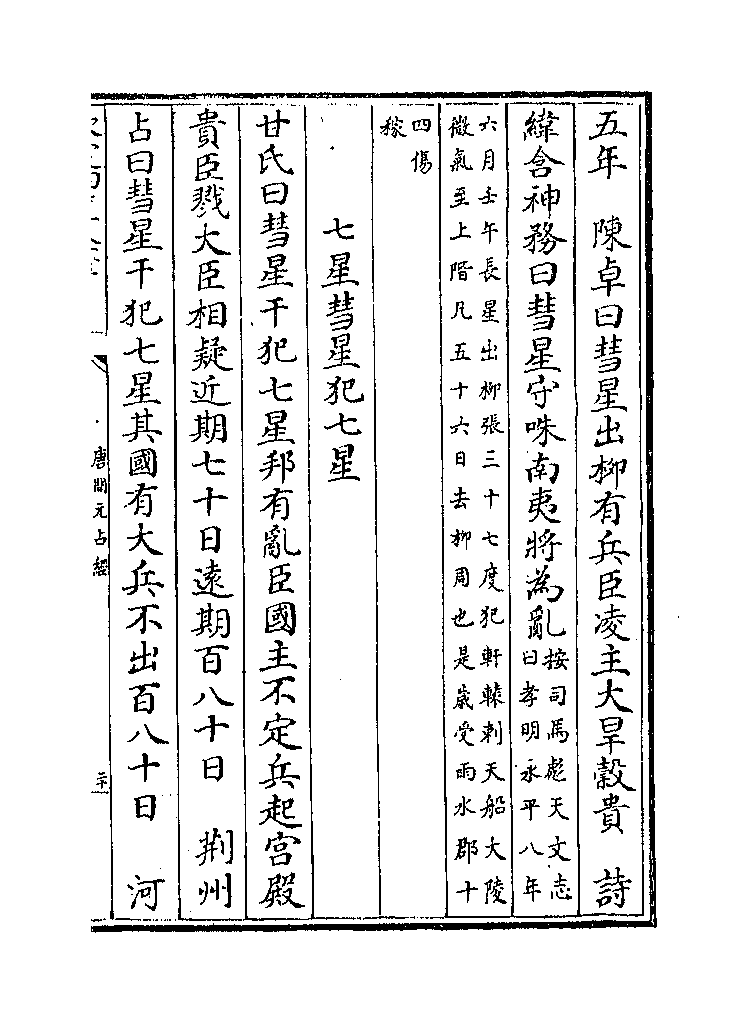 五年　陳卓曰彗星出柳有兵臣凌主大旱穀貴　詩
緯含神務曰彗星守咮南夷將為亂按司馬彪天文志
曰孝明永平八年
六月壬午長星出柳張三十七度犯軒轅刺天船大陵
微氣至上階凡五十六日去柳周也是歲受雨水郡十
四傷
稼
七星彗星犯七星
甘氏曰彗星干犯七星邦有亂臣國主不定兵起宮殿
貴臣戮大臣相疑近期七十日遠期百八十日　荆州
占曰彗星干犯七星其國有大兵不出百八十日　河
唐開元占經